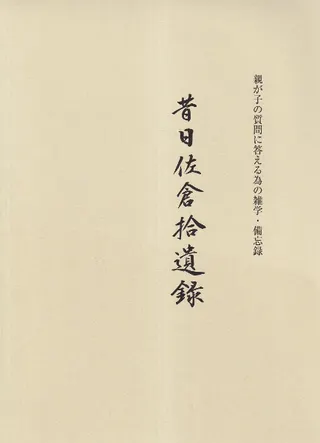 親が子の質問に答える為の雑学・備忘録
昔日佐倉拾遺録